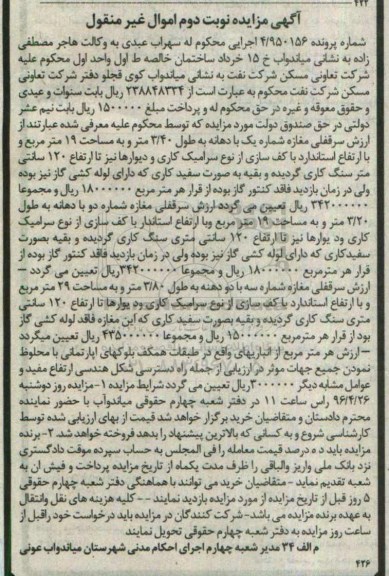 ۴۲۲
آگهی مزایده نوبت دوم اموال غیر منقول
شماره پرونده ۴/۹۵۰۱۵۶ اجرایی محکوم له سهراب عبدی به وکالت هاجر مصطفی
زاده به نشانی میاندواب خ ۱۵ خرداد ساختمان خالصه ط اول واحد اول محکوم علیه
شرکت تعاونی مسکن شرکت نفت به نشانی میاندواب کوی قجلو دفتر شرکت تعاونی
مسکن شرکت نفت محکوم به عبارت است از ۲۳۸۸۴۸۳۳۴ ریال بابت سنوات و عیدی
و حقوق معوقه و غیره در حق محکوم له و پرداخت مبلغ ۱۵۰۰۰۰۰ ریال بابت نیم عشر
دولتی در حق صندوق دولت مورد مزایده که توسط محکوم علیه معرفی شده عبارتند از
ارزش سرقفلی مغازه شماره یک با دهانه به طول ۳/۴۰ متر و به مساحت ۱۹ متر مربع و
با ارتفاع استاندارد با کف سازی از نوع سرامیک کاری و دیوارها نیز تا ارتفاع ۱۲۰ سانتی
متر سنگ کاری گردیده و بقیه به صورت سفید کاری که دارای لوله کشی گاز نیز بوده
ولی در زمان بازدید فاقد کنتور گاز بوده از قرار هر متر مربع ۱۸۰۰۰۰۰۰ ریال و مجموعا
۳۴۲۰۰۰۰۰۰ ریال تعیین می گردد ارزش سرقفلی مغازه شماره دو با دهانه به طول
۳/۲۰ متر و به مساحت ۱۹ متر مربع وبا ارتفاع استاندار با کف سازی از نوع سرامیک
کاری ود یوارها نیز تا ارتفاع ۱۲۰ سانتی متری سنگ کاری گردیده و بقیه بصورت
سفیدکاری که دارای لوله کشی گاز نیز بوده ولی در زمان بازدید فاقد کنتور گاز بوده از
قرار هر مترمربع ۱۸۰۰۰۰۰۰ ریال و مجموعا ۳۴۲۰۰۰۰۰۰ ریال تعیین می گردد –
ارزش سرقفلی مغازه شماره سه با دو دهنه به طول ۳/۸۰ متر و به مساحت ۲۹ متر مربع
و با ارتفاع استاندارد با کف سازی از نوع سرامیک کاری ود یوارها تا ارتفاع ۱۲۰ سانتی
متری سنگ کاری گردیده و بقیه بصورت سفید کاری که این مغازه فاقد لوله کشی گاز
بود از قرار هر مترمربع ۱۵۰۰۰۰۰۰ ریال و مجموعا ۴۳۵۰۰۰۰۰۰ ریال تعیین میگردد
– ارزش هر متر مربع از انباریهای واقع در طبقات همکف بلوکهای اپارتمانی با ملحوظ
نمودن جمیع جهات موثر در ارزیابی از جمله راه دسترسی شکل هندسی ارتفاع مفید و
عوامل مشابه دیگر ۳۰۰۰۰۰۰ ریال تعیین می گردد شرایط مزایده ۱- مزایده روز دوشنبه
۹۶/۴/۲۶ راس ساعت ۱۱ در دفتر شعبه چهارم حقوقی میاندواب با حضور نماینده
محترم دادستان و متقاضیان خرید برگزار خواهد شد قیمت از بهای ارزیابی شده توسط
کارشناسی شروع و به کسانی که بالاترین پیشنهاد را بدهد فروخته خواهد شد. ۲- برنده
مزایده باید ده درصد قیمت معامله را فی المجلس به حساب سپرده موقت دادگستری
نزد بانک ملی واریز والباقی را ظرف مدت یکماه از تاریخ مزایده پرداخت و فیش ان به
شعبه تقدیم نماید - متقاضیان خرید می توانند با هماهنگی دفتر شعبه چهارم حقوقی
۵ روز قبل از تاریخ مزایده از مورد مزایده بازدید نمایند - - کلیه هزینه های نقل وانتقال
به عهده برنده مزایده می باشد- شرکت کنندگان در مزایده باید درخواست خود راقبل از
ساعت روز مزایده به دفتر شعبه چهارم حقوقی تحویل نمایند
م الف ۳۴ مدیر شعبه چهارم اجرای احکام مدنی شهرستان میاندواب عونی
۴۲۶